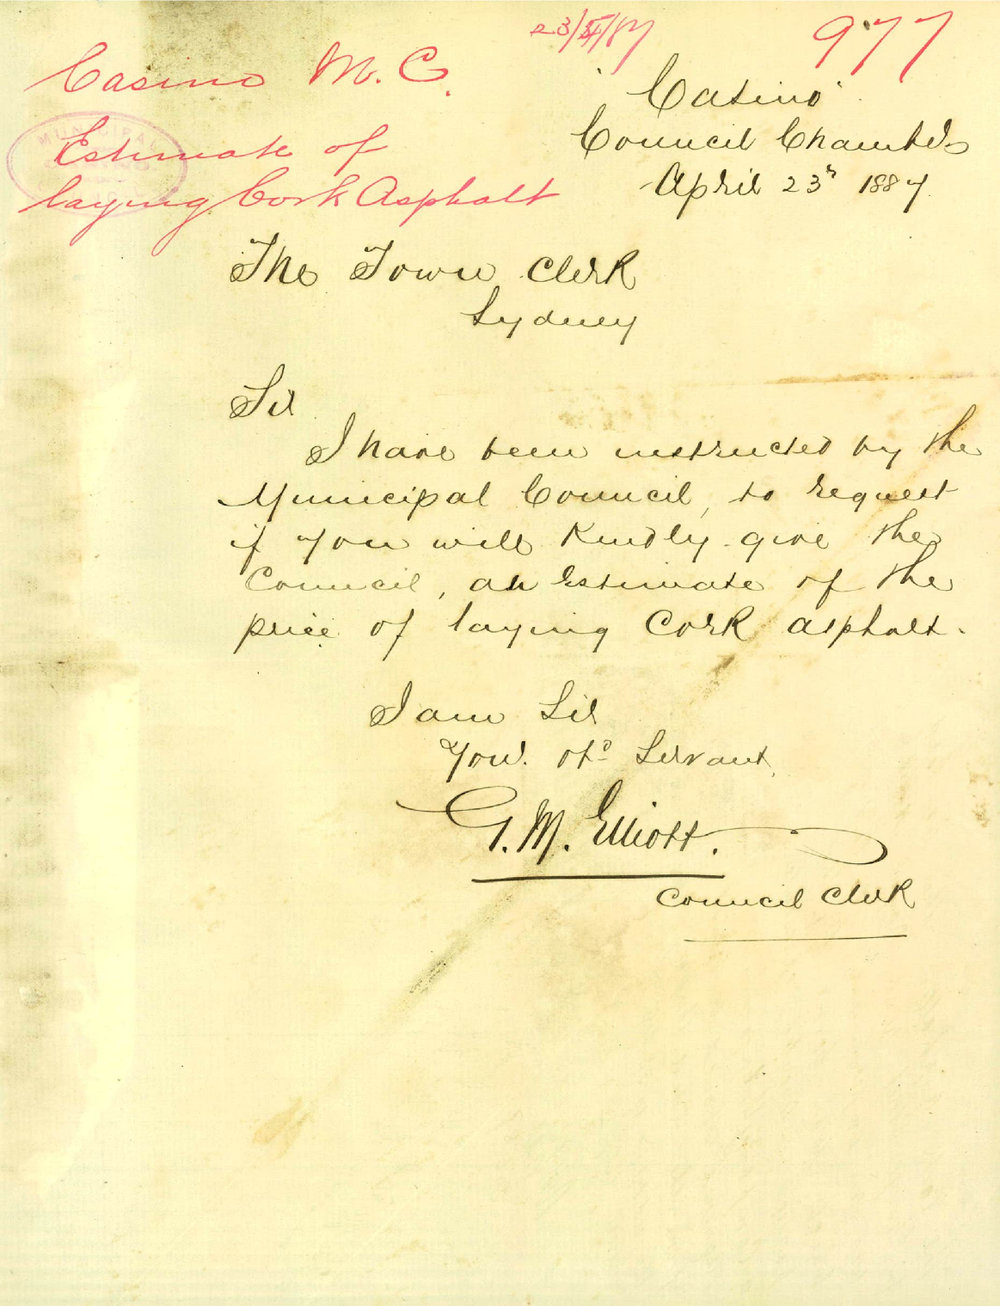 23/4/87
977
Casino M.C.
Estimate of
laying Cork Asphalt
MUNICIPAL
"Casino"
Council Chambers
April 23rd 1887.
The Town Clerk
Sydney
Sir
I have been instructed by the
Municipal Council, to request
if you will kindly give the
Council, an Estimate of the
price of laying Cork asphalt.
I am Sir
Your Obt Servant,
G. M. Elliott.
Council Clerk